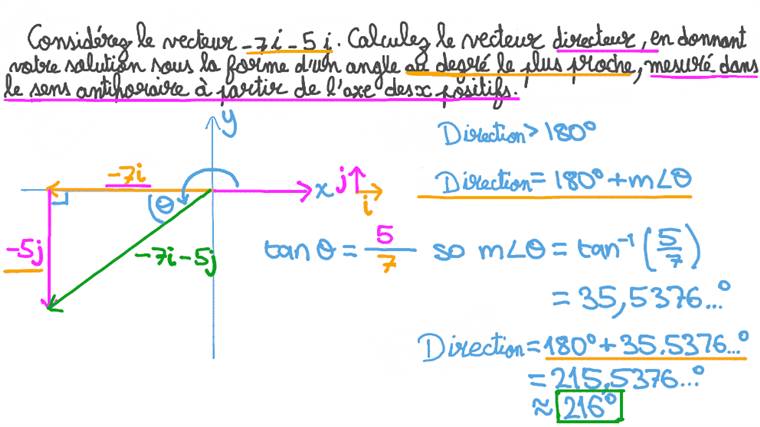 Considérez le vecteur -7i-5j. Calculez le vecteur directeur, en donnant
votre solution sous la forme d'un angle au degré le plus proche, mesuré dans
le sens antihoraire à partir de l'axe des x positifs.
y
Direction > 180°
-7i
x
j
i
Direction = 180° + m∠θ
θ
-5j
-7i-5j
tan θ = 5/7 so m∠θ = tan⁻¹(5/7)
= 35,5376...°
Direction = 180° + 35.5376...°
= 215,5376...°
≈ 216°